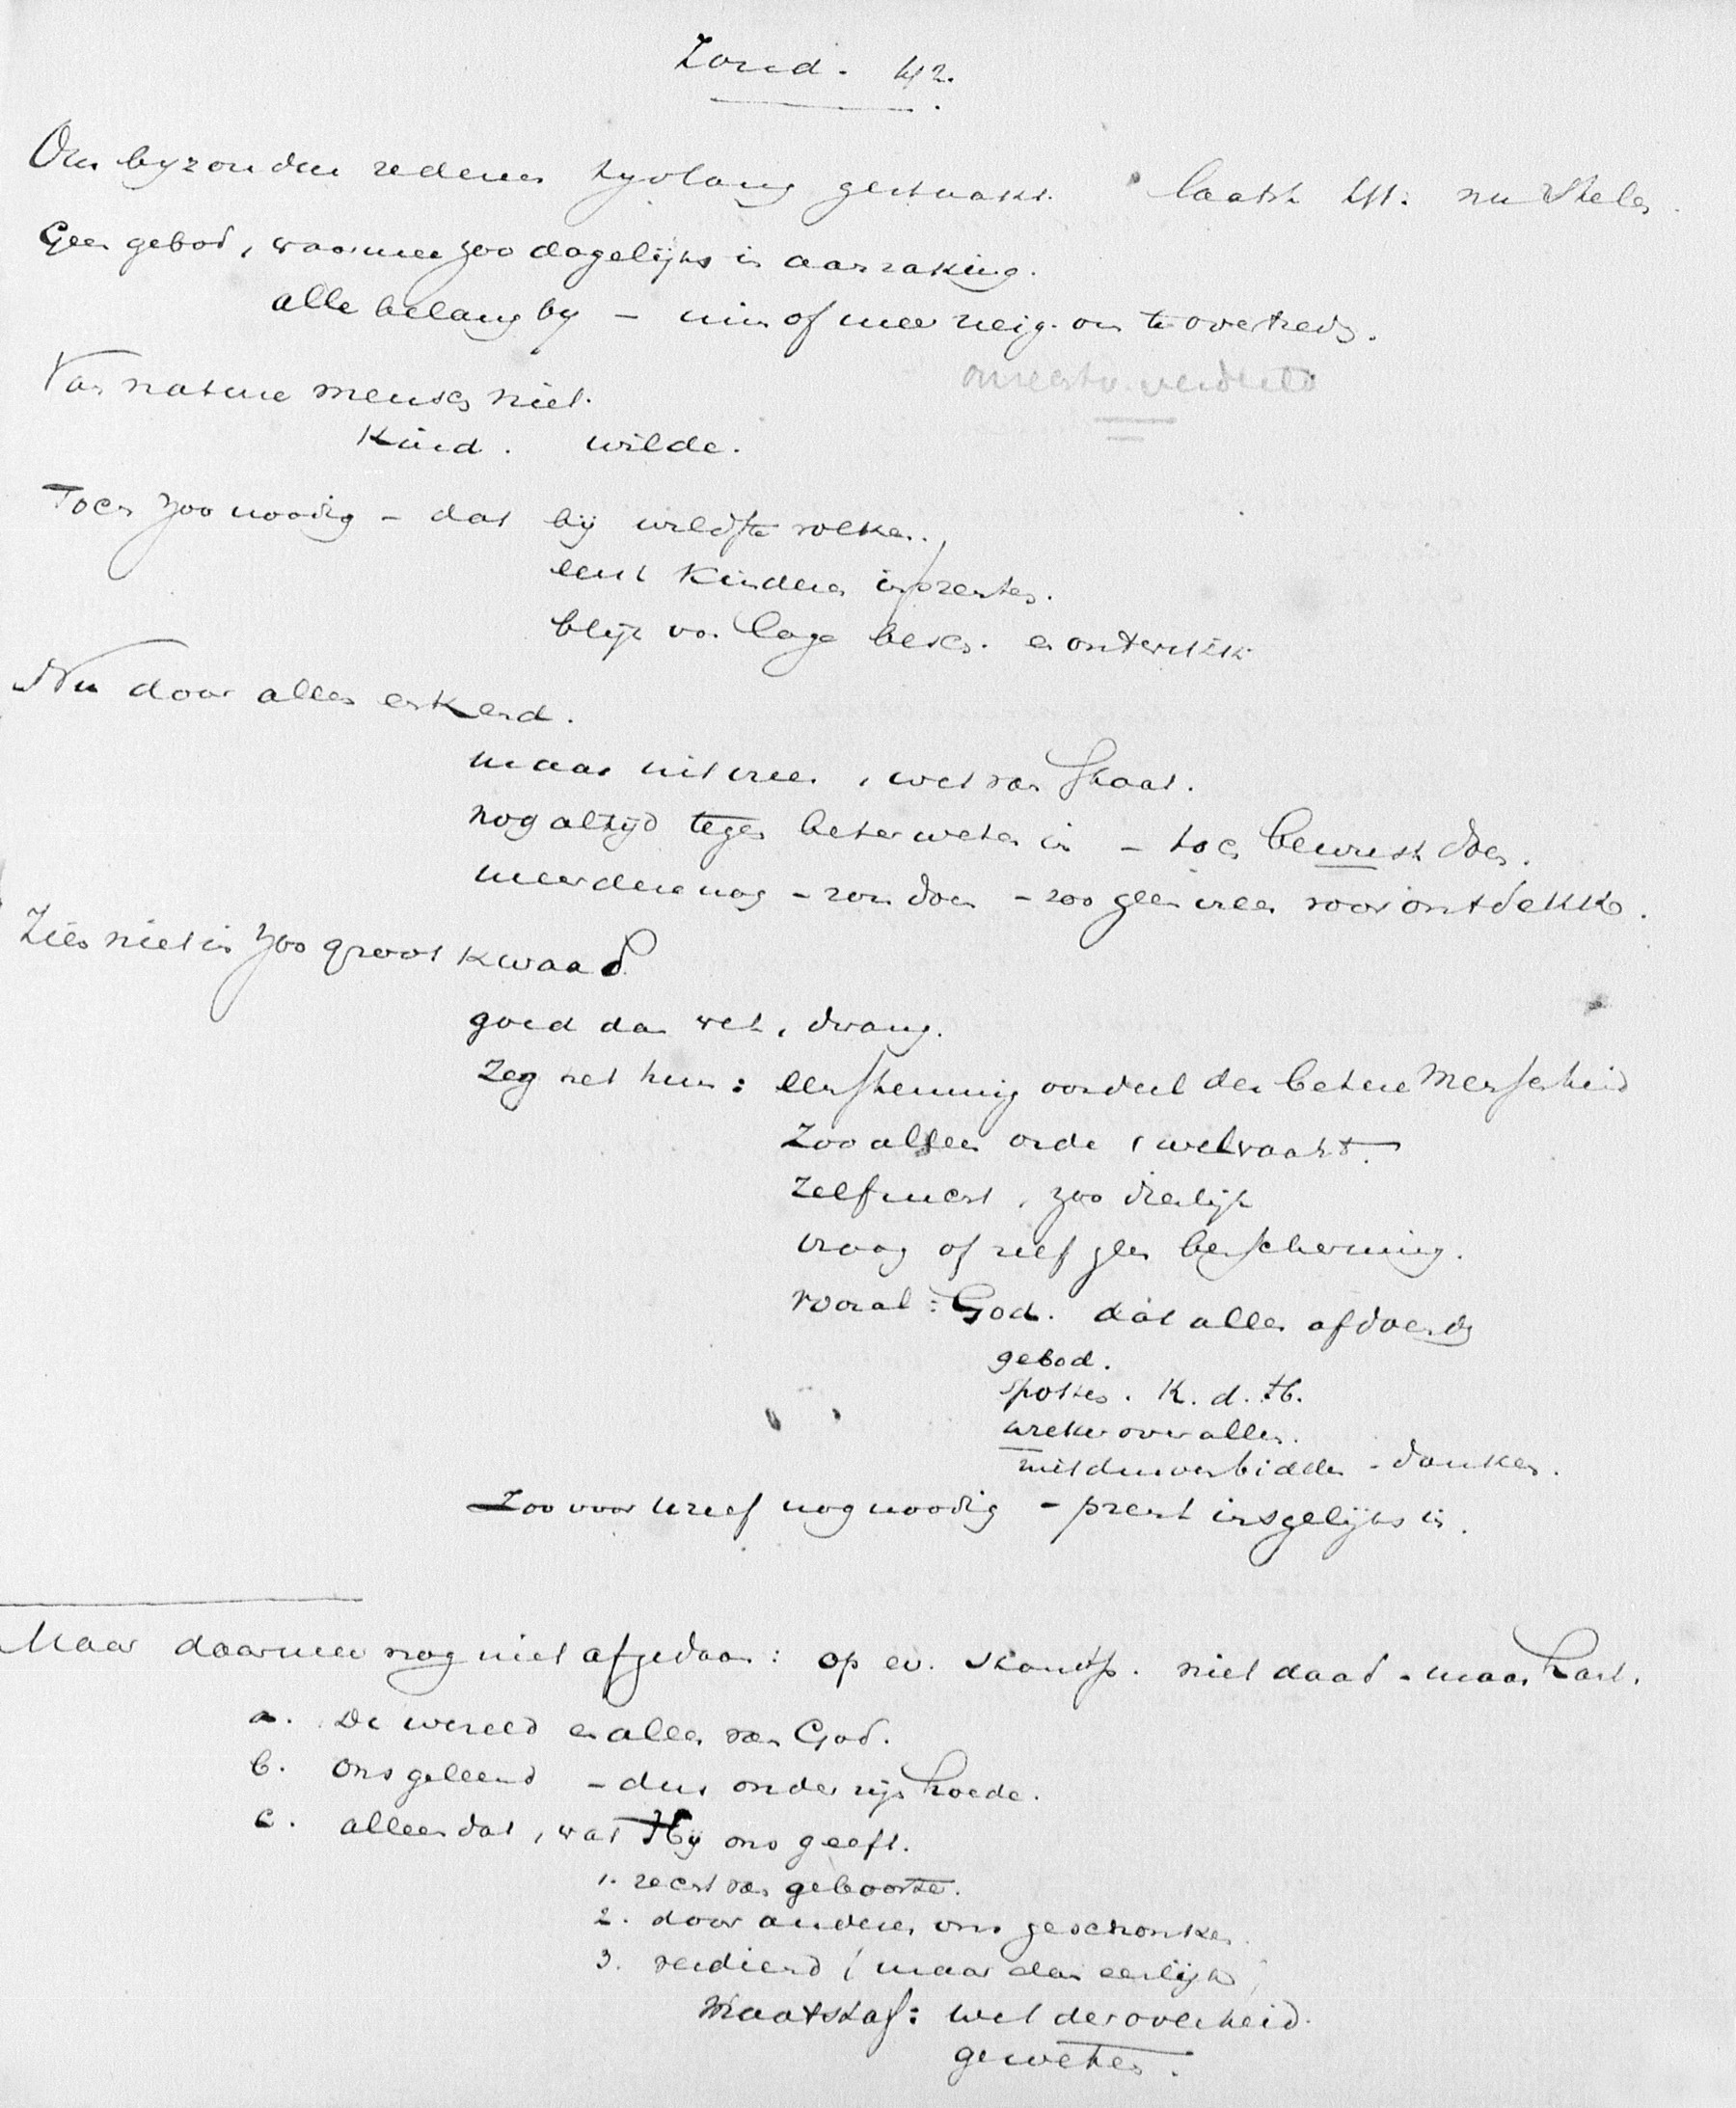 Zond. 42.
Om byzondere redenen tijdlang gestaakt. laatst 41. nu Stelen
Geen gebod, waarmee zoo dagelijks in aanraking.
alle belang by – min of meer neig. om te overtreden.
Van nature mensch niet.
Kind. wilde.
Toch zoo noodig – dat bij wildste volken.
eerst kinderen inprenten.
blijk van lage besch. en ontwikk
Nu door allen erkend.
maar uit vrees, wet van Staat.
nog altijd tegen beter weten in – toch bewust doen.
meerdere nog – zou doen – zoo geen vrees voor ontdekk.
Zien niet in zoo groot kwaad
goed dan wet, dwang.
Zeg het hun: eenstemmig oordeel der betere Menschheid
Zoo alleen orde, welvaart.
zelf mensch, zoo dierlijk
vraag of zelf geen bescherming.
vooral: God. dat alles afdoende
gebod.
spotten. K. d. H.
wreker over allen.
niet durven bidden – danken.
Zoo voor uzelf nog noodig – prent insgelijks in.
Maar daarmee nog niet afgedaan: op ev. standp. niet daad – maar hart.
a. De wereld en alles van God.
b. Ons geleend – dus onder zijn hoede.
c. alleen dat, wat Hij ons geeft.
1. recht van geboorte.
2. door anderen ons geschonken.
3. verdiend (maar dan eerlijk)
Maatstaf: wet der overheid.
geweten.